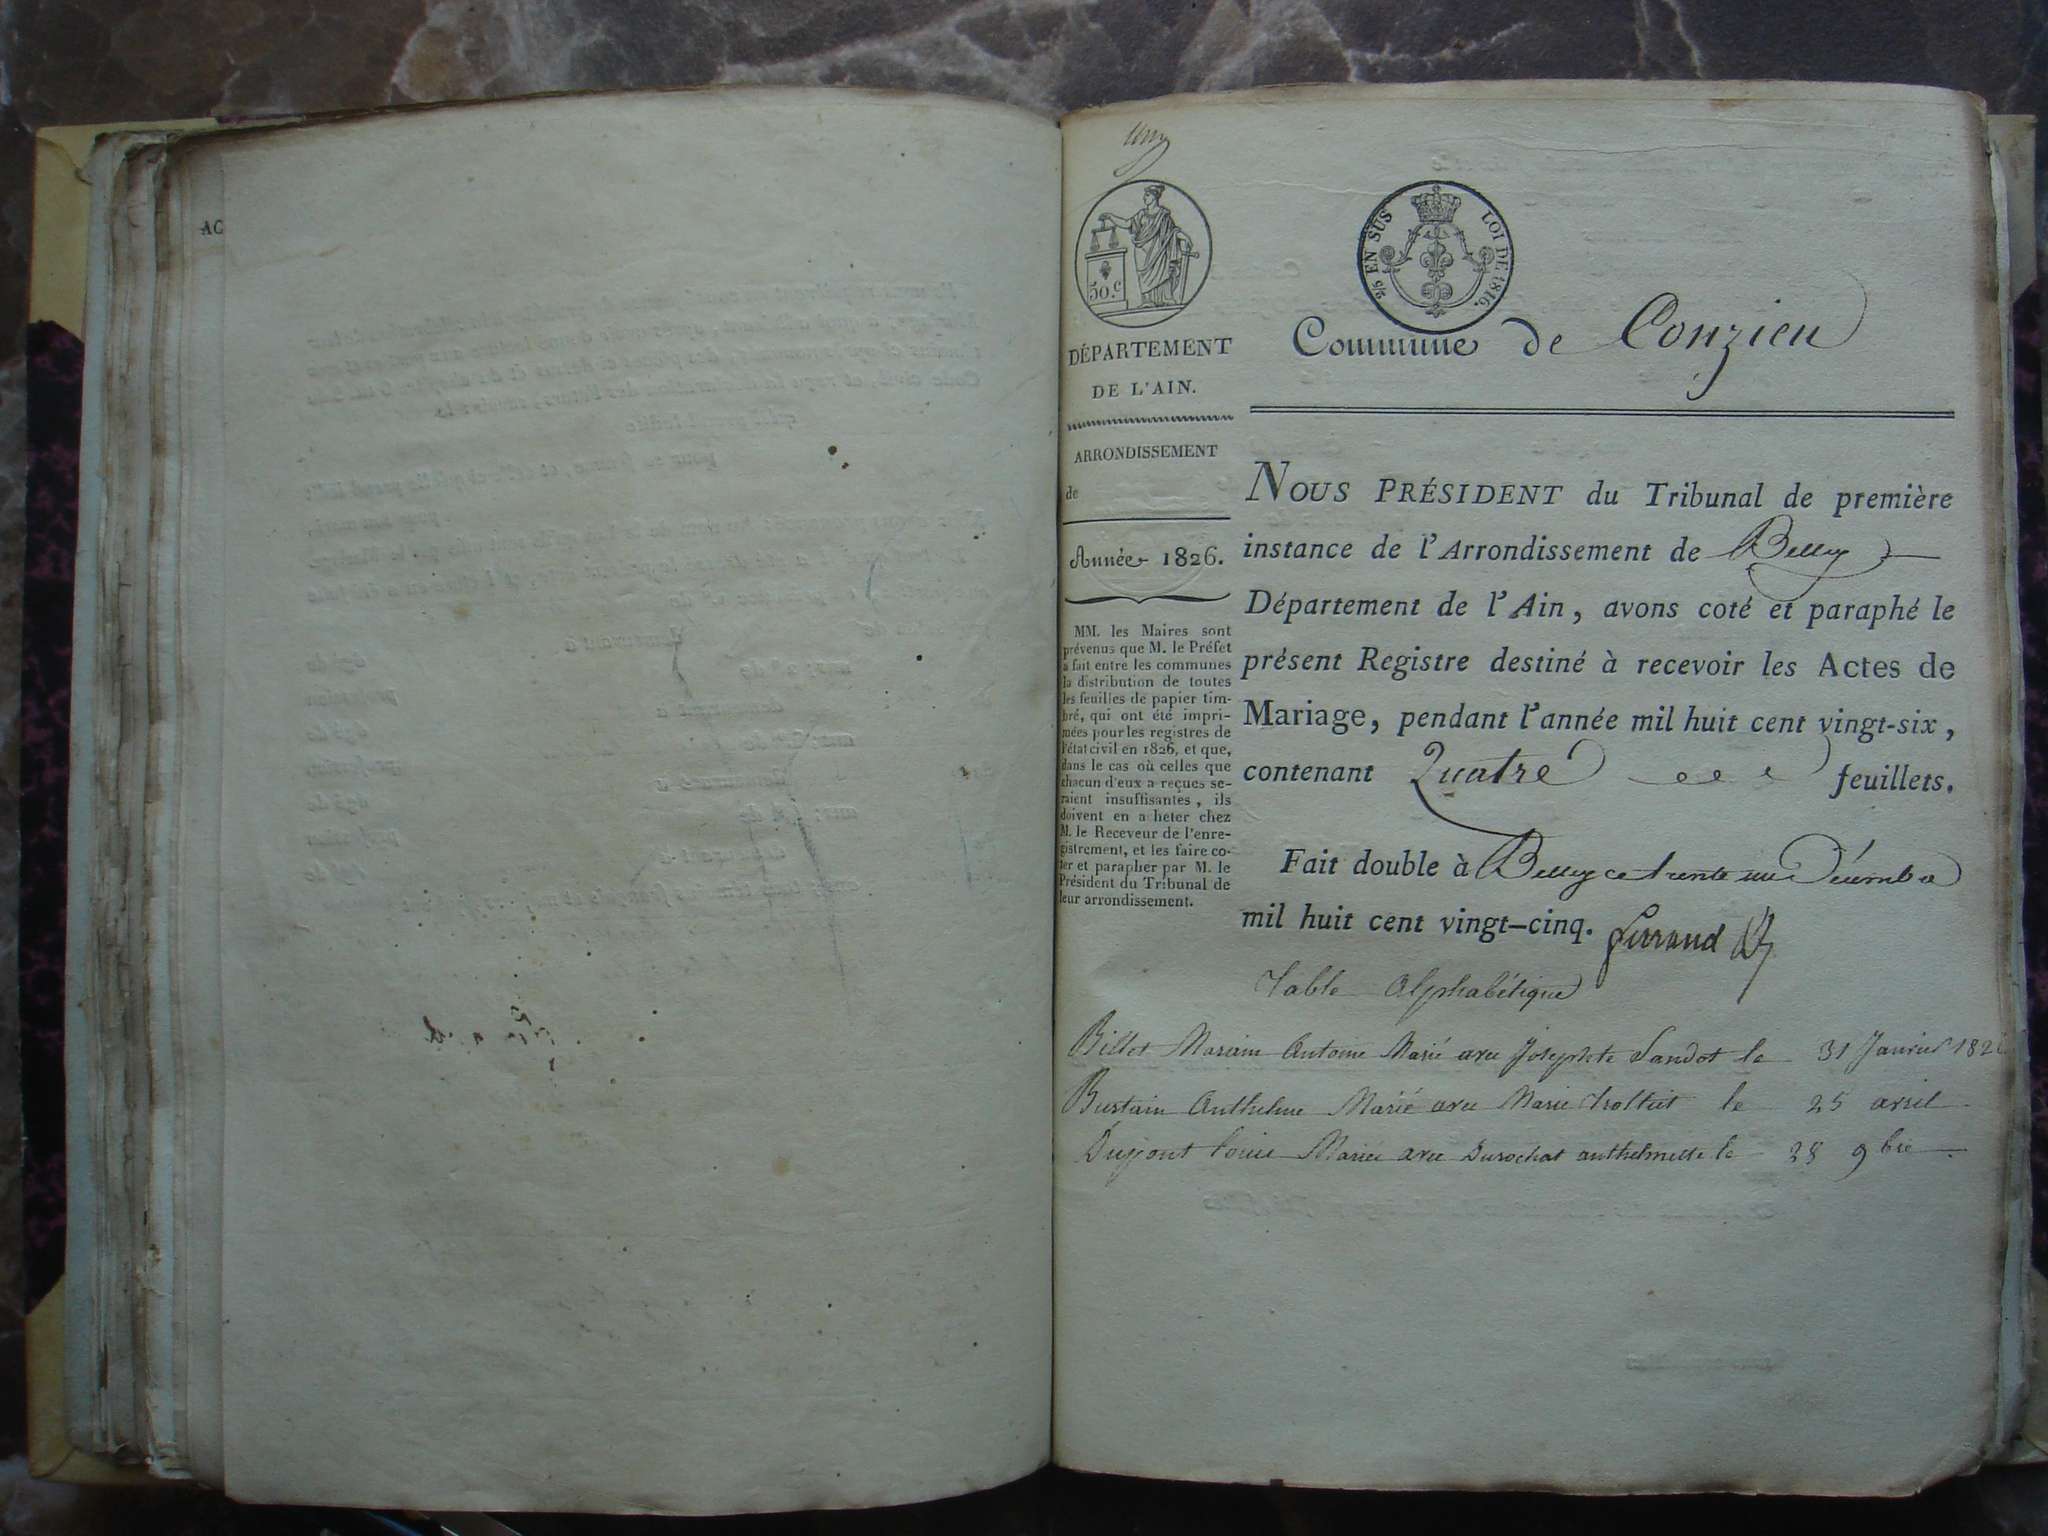 AC
50.c
2/5 EN SUS
LOI DE 1816.
DÉPARTEMENT
DE L'AIN.
ARRONDISSEMENT
de
Année 1826.
MM. les Maires sont
prévenus que M. le Préfet
a fait entre les communes
la distribution de toutes
les feuilles de papier tim-
bré, qui ont été impri-
mées pour les registres de
l'état civil en 1826, et que,
dans le cas où celles que
chacun d'eux a reçues se-
raient insuffisantes, ils
doivent en a heter chez
M. le Receveur de l'enre-
gistrement, et les faire co-
ter et parapher par M. le
Président du Tribunal de
leur arrondissement.
Commune de Conzieu
NOUS PRÉSIDENT du Tribunal de première
instance de l'Arrondissement de Belley
Département de l'Ain, avons coté et paraphé le
présent Registre destiné à recevoir les Actes de
Mariage, pendant l'année mil huit cent vingt-six,
contenant Quatre feuillets.
Fait double à Belley ce trente un Décembre
mil huit cent vingt-cinq.
Table Alphabétique
Billet Antoine Marié avec Josephte le 31 Janvier 1826
Anthelme Marié avec Marie le 25 avril
Dupont Louise Mariée avec anthelmette le 28 9bre